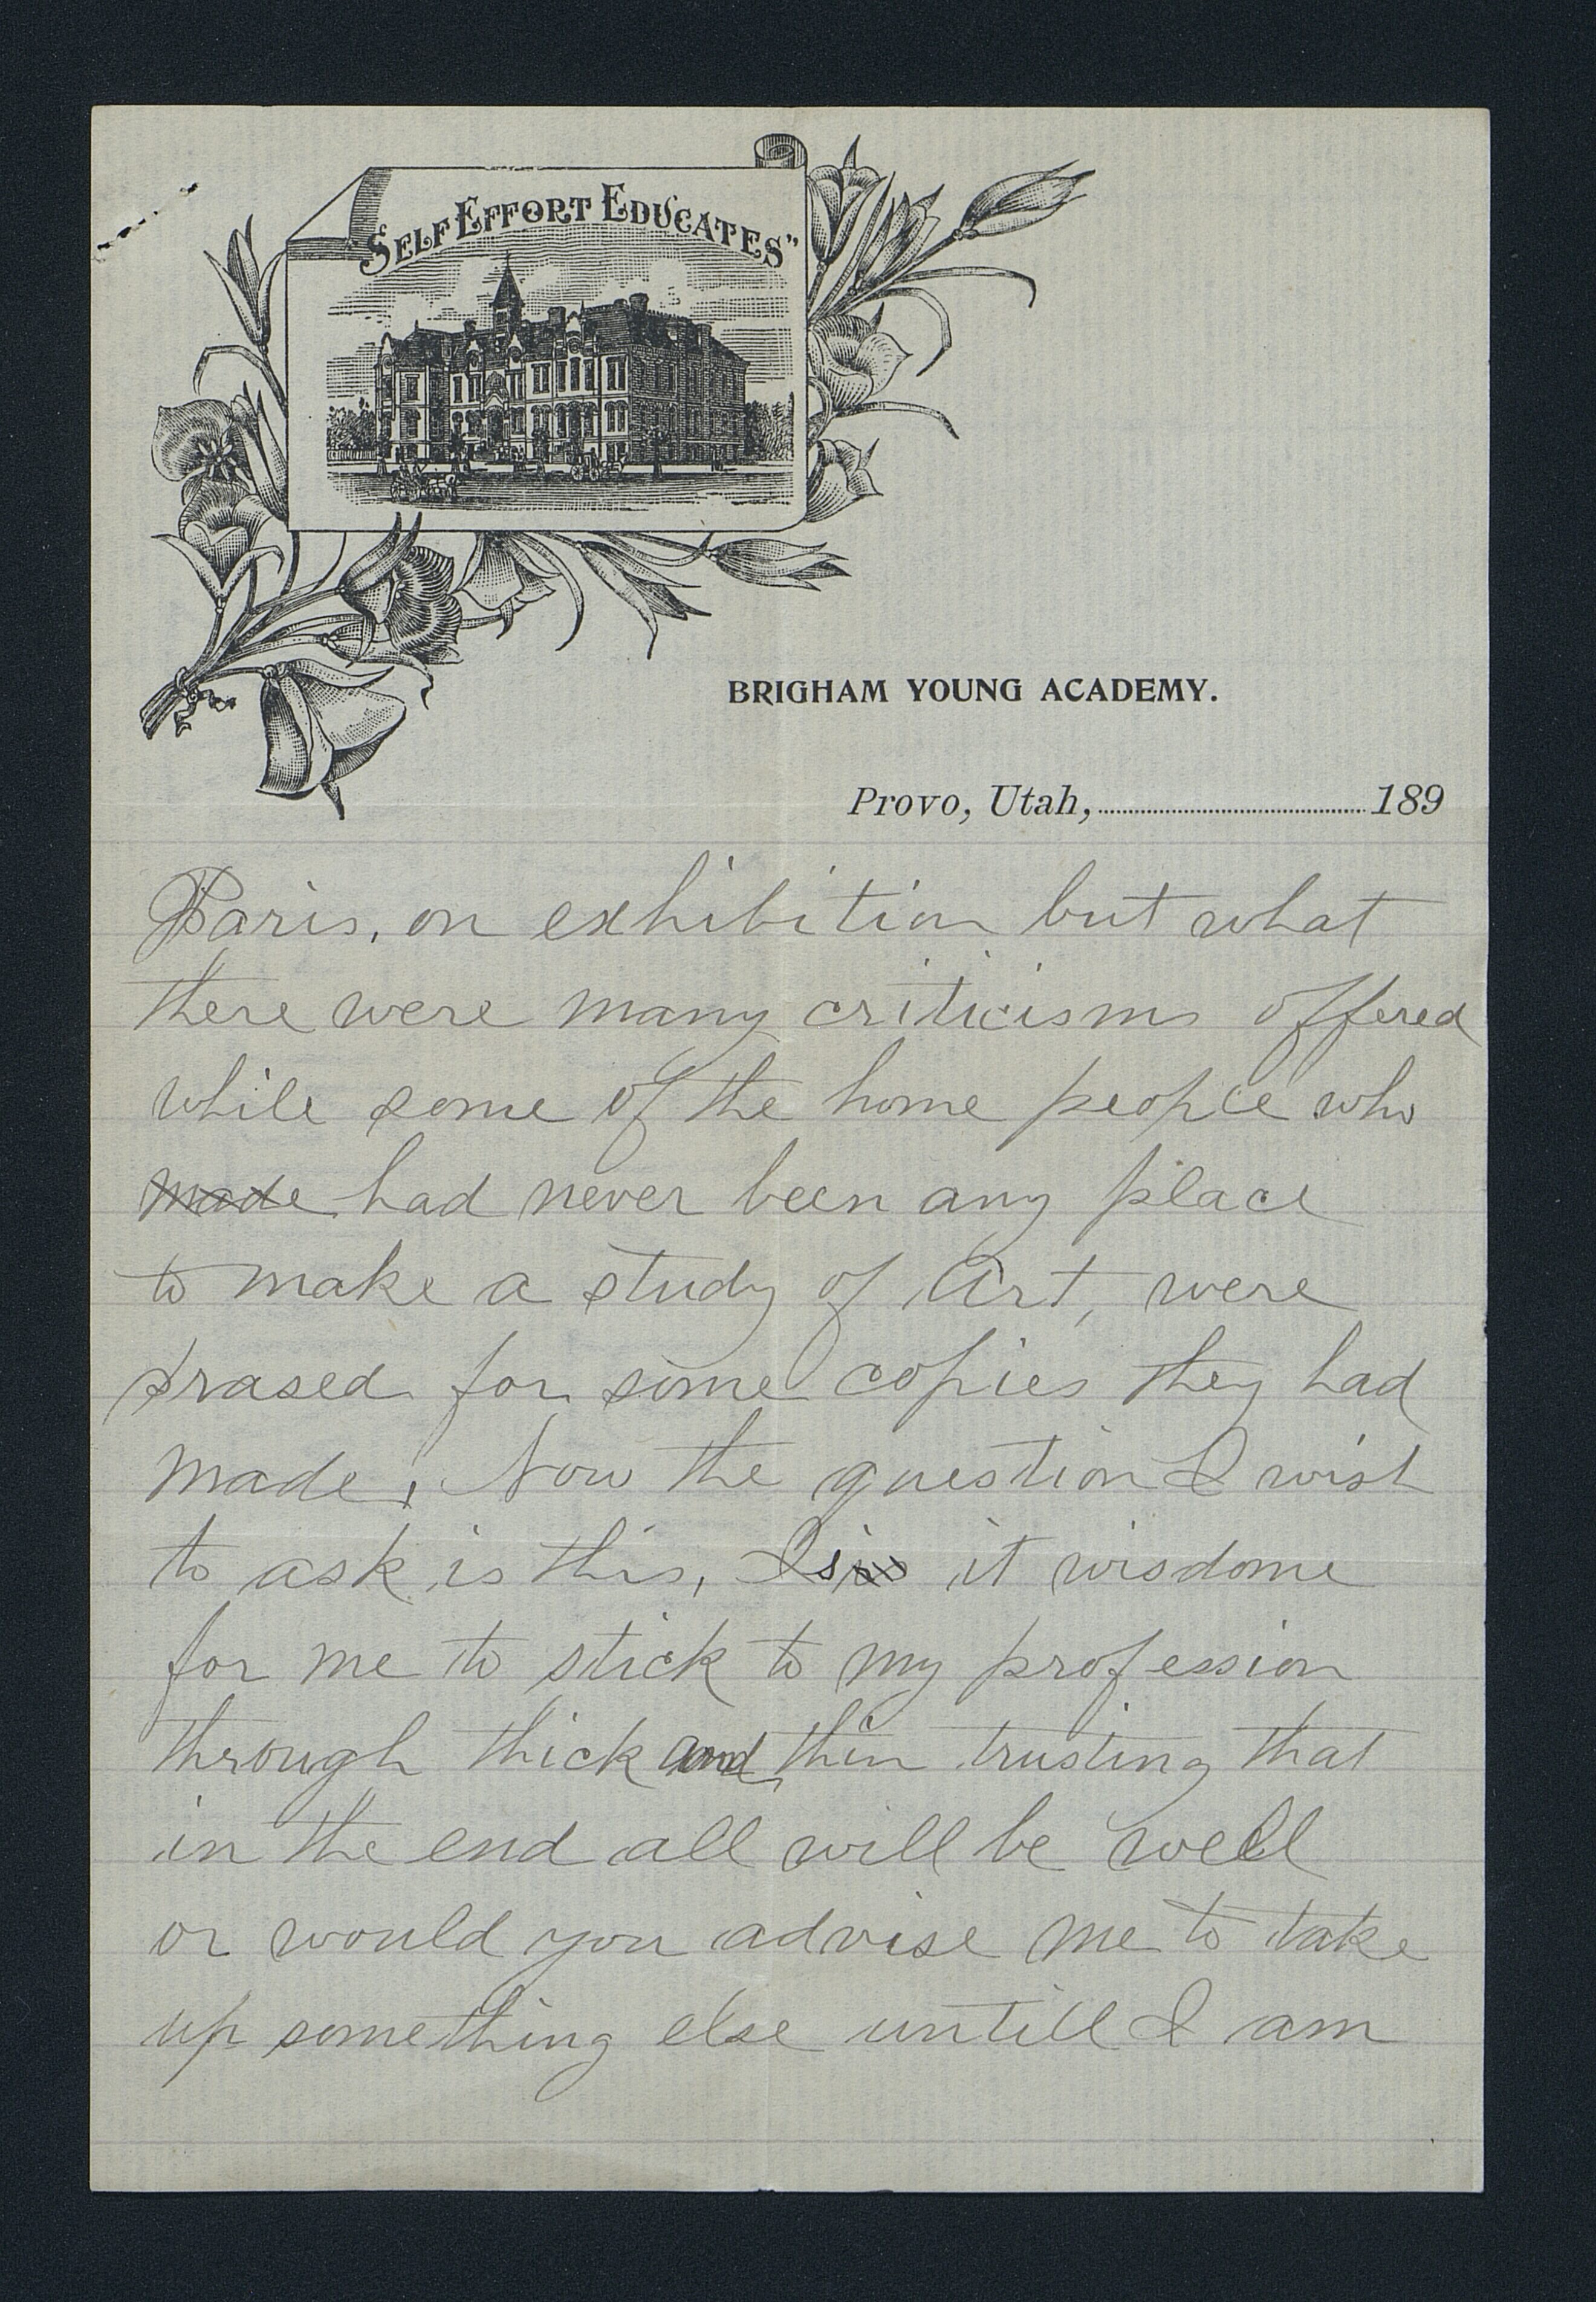 "SELF EFFORT EDUCATES"
BRIGHAM YOUNG ACADEMY.
Provo, Utah, 189
Paris, on exhibition but what
there were many criticisms offered
while some of the home people who
made had never been any place
to make a study of Art, were
prased for some copies they had
made, Now the question I wish
to ask is this, Is is it wisdome
for me to stick to my profession
through thick and thin trusting that
in the end all will be well
or would you advise me to take
up something else untill I am